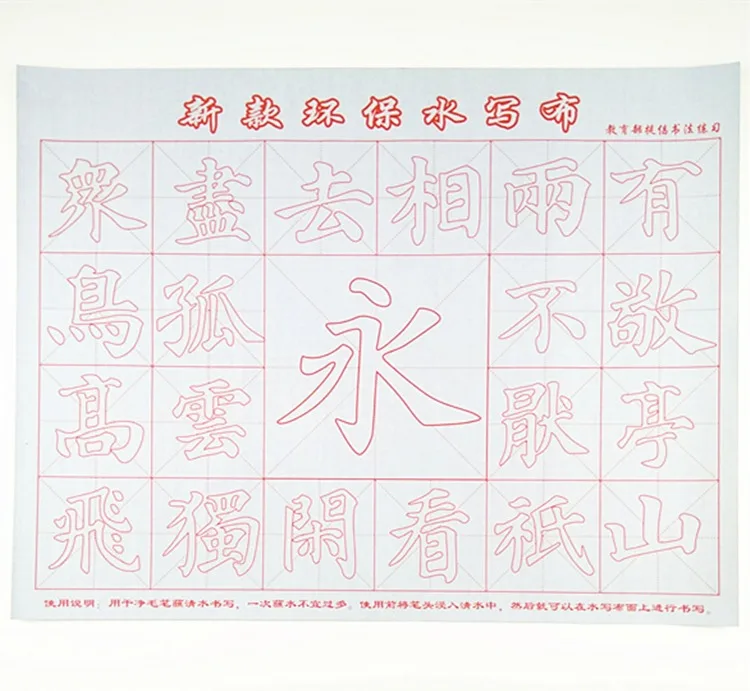 新款环保水写布
教育部提倡书法练习
衆盡去相兩有
鳥孤永不敬
高雲厭亭
飛獨閑看祇山
使用说明：用干净毛笔蘸清水书写，一次蘸水不宜过多。使用前将笔头浸入清水中，然后就可以在水写布面上进行书写。